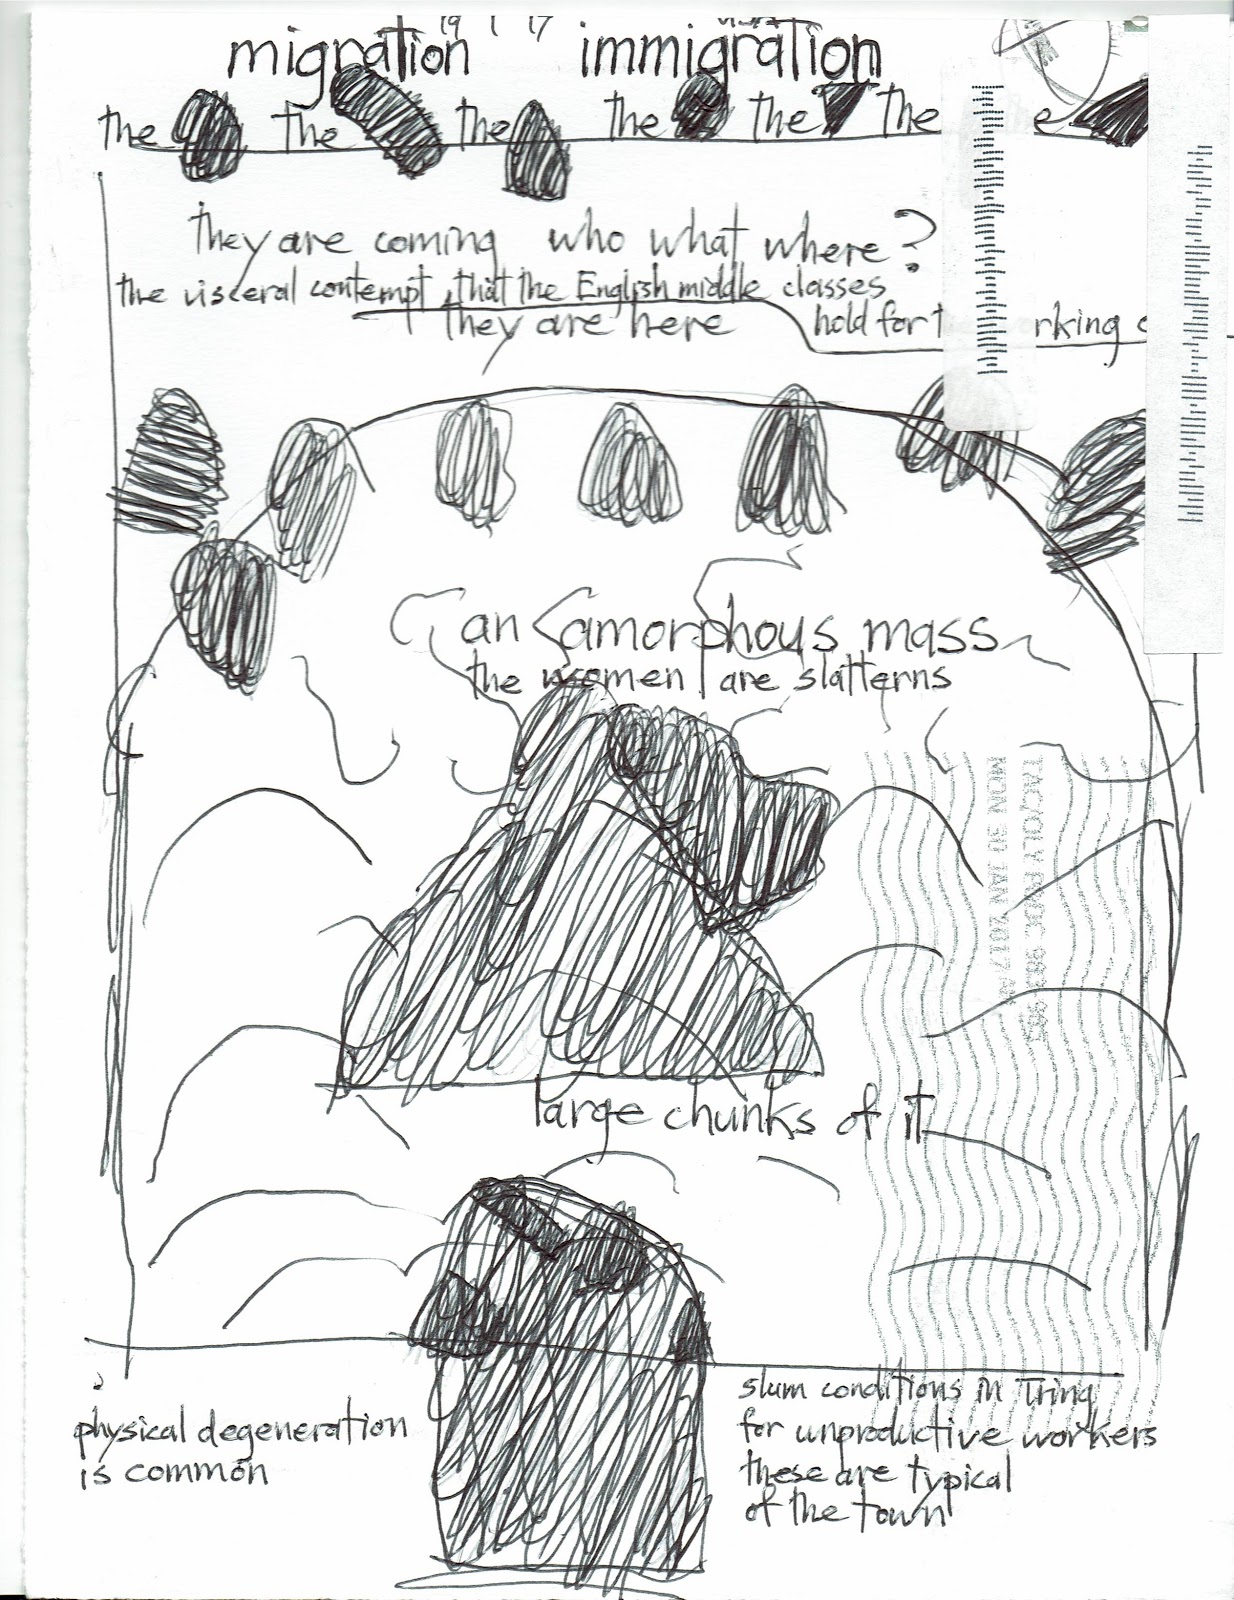 19 1 17
migration immigration
the the the the the the e
they are coming who what where?
the visceral contempt that the English middle classes
they are here hold for t orking c
an amorphous mass
the women are slatterns
MON 30 JAN 2017 AM
large chunks of it
physical degeneration
is common
slum conditions in Tring
for unproductive workers
these are typical
of the town